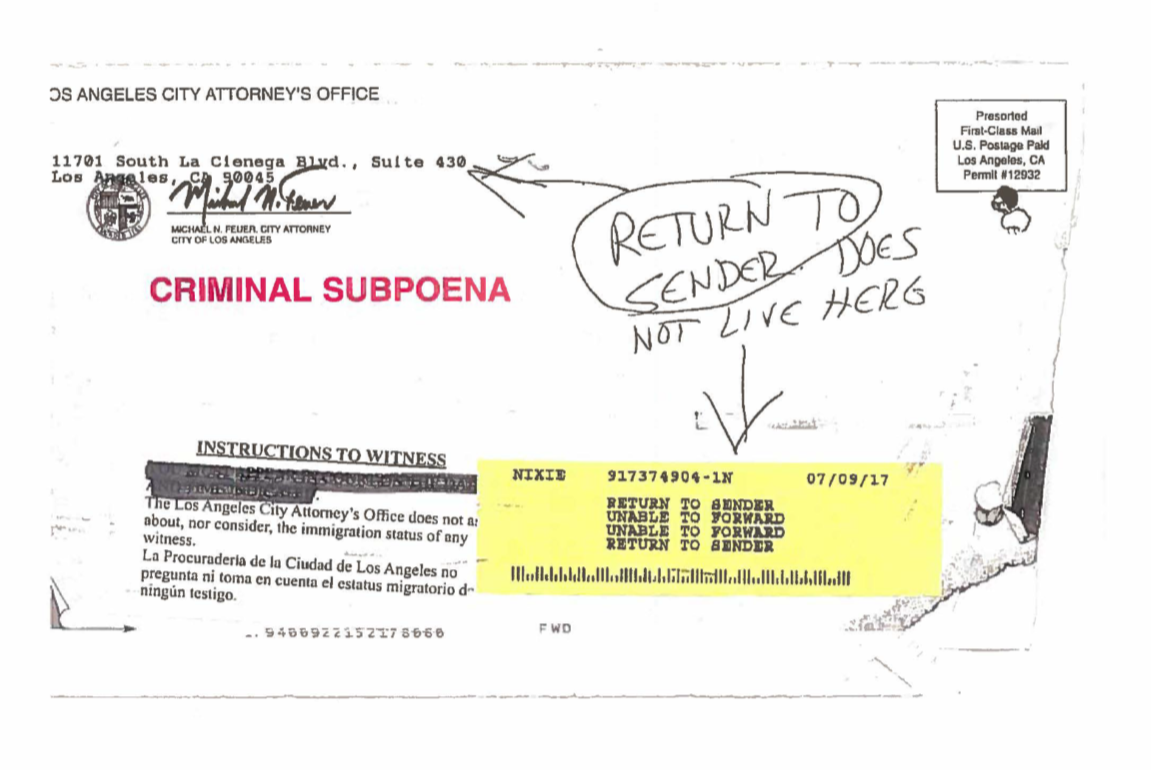 OS ANGELES CITY ATTORNEY'S OFFICE
11701 South La Cienega Blvd., Suite 430
Los Angeles, CA 90045
Michael N. Feuer
MICHAEL N. FEUER, CITY ATTORNEY
CITY OF LOS ANGELES
CRIMINAL SUBPOENA
Presorted
First-Class Mail
U.S. Postage Paid
Los Angeles, CA
Permit #12932
RETURN TO
SENDER. DOES
NOT LIVE HERE
INSTRUCTIONS TO WITNESS
The Los Angeles City Attorney's Office does not a
about, nor consider, the immigration status of any
witness.
La Procuraderia de la Ciudad de Los Angeles no
pregunta ni toma en cuenta el estatus migratorio d
ningún testigo.
NIXIE 917374904-1N 07/09/17
RETURN TO SENDER
UNABLE TO FORWARD
UNABLE TO FORWARD
RETURN TO SENDER
FWD